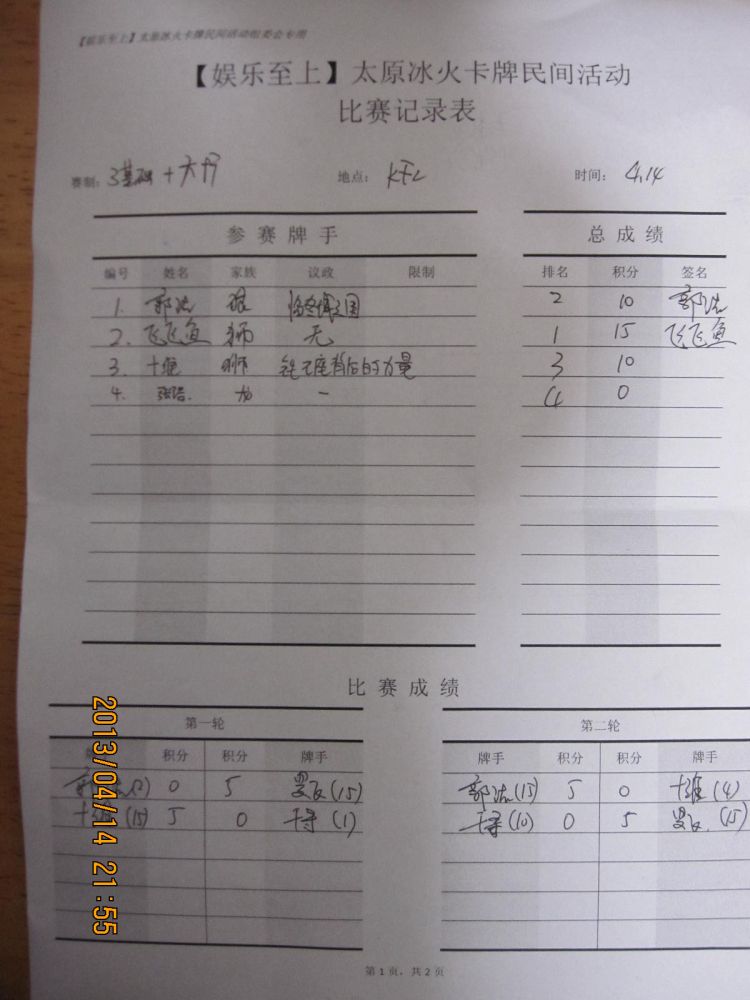 【娱乐至上】太原冰火卡牌民间活动组委会专用
【娱乐至上】太原冰火卡牌民间活动
比赛记录表
赛制：3基础+大 地点：KFC 时间：4.14
参赛牌手 总成绩
编号 姓名 家族 议政 限制 排名 积分 签名
1. 郭浩 狼 2 10 郭浩
2. 飞飞鱼 狮 无 1 15 飞飞鱼
3. 十维 狮 铁王座背后的力量 3 10
4. 张浩 龙 一 4 0
比赛成绩
第一轮 第二轮
积分 积分 牌手 牌手 积分 积分 牌手
0 5 (15) 郭浩(15) 5 0 十维(4)
十维(15) 5 0 (1) (10) 0 5 (15)
2013/04/14 21:55
第1页，共2页